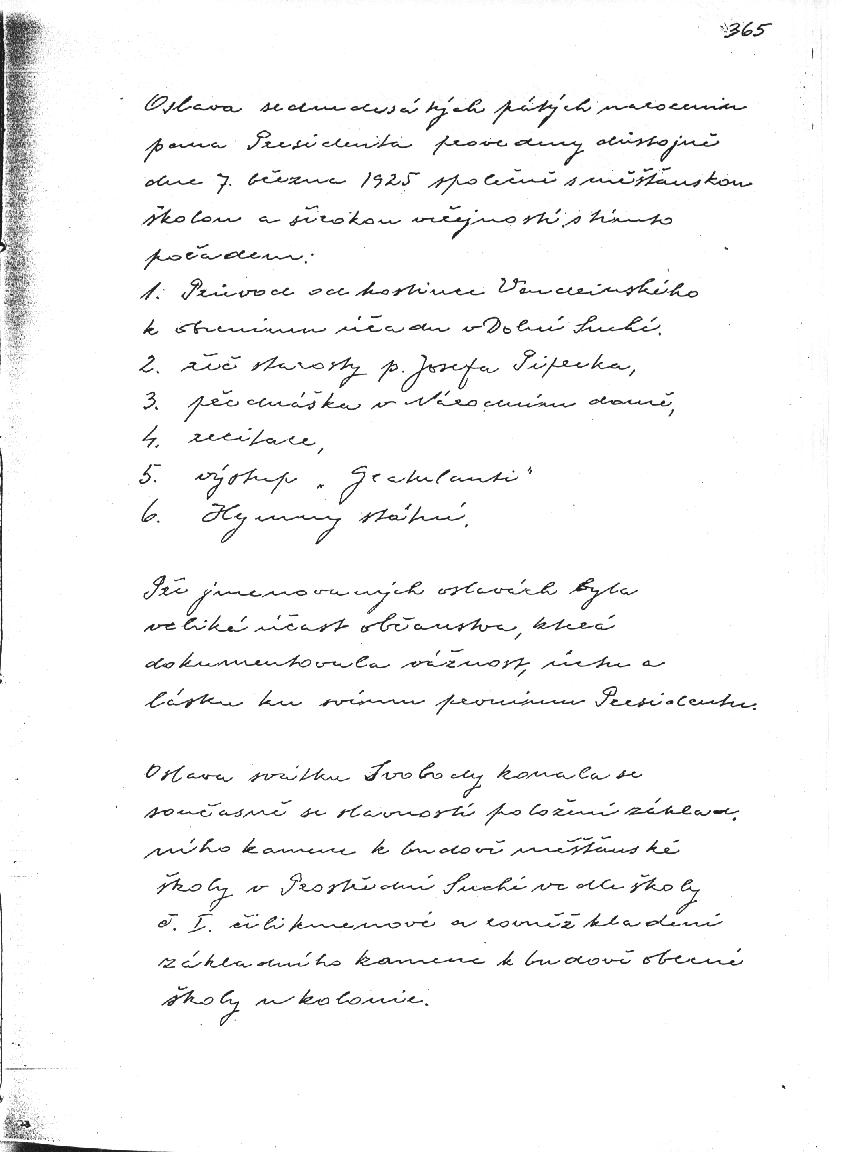 365
Oslava sedmdesátých pátých narozenin
pana Presidenta provedeny důstojně
dne 7. března 1925 společně s měšťanskou
školou a širokou veřejností s tímto
pořadem:
1. Průvod od hostince
k obecnímu úřadu v Dolní Suché.
2. řeč starosty p. Josefa
3. přednáška v Národním domě,
4. recitace,
5. výstup „Gratulanti"
6. Hymny státní.
Při jmenovaných oslavách byla
veliké účast občanstva, která
dokumentovala vážnost, úctu a
lásku ku svému prvnímu Presidentu.
Oslava svátku Svobody konala se
současně se slavností položení základ.
ního kamene k budově měšťánské
školy v Prostřední Suché vedle školy
č. I. čili kmenové a rovněž kladení
základního kamene k budově obecné
školy u kolonie.